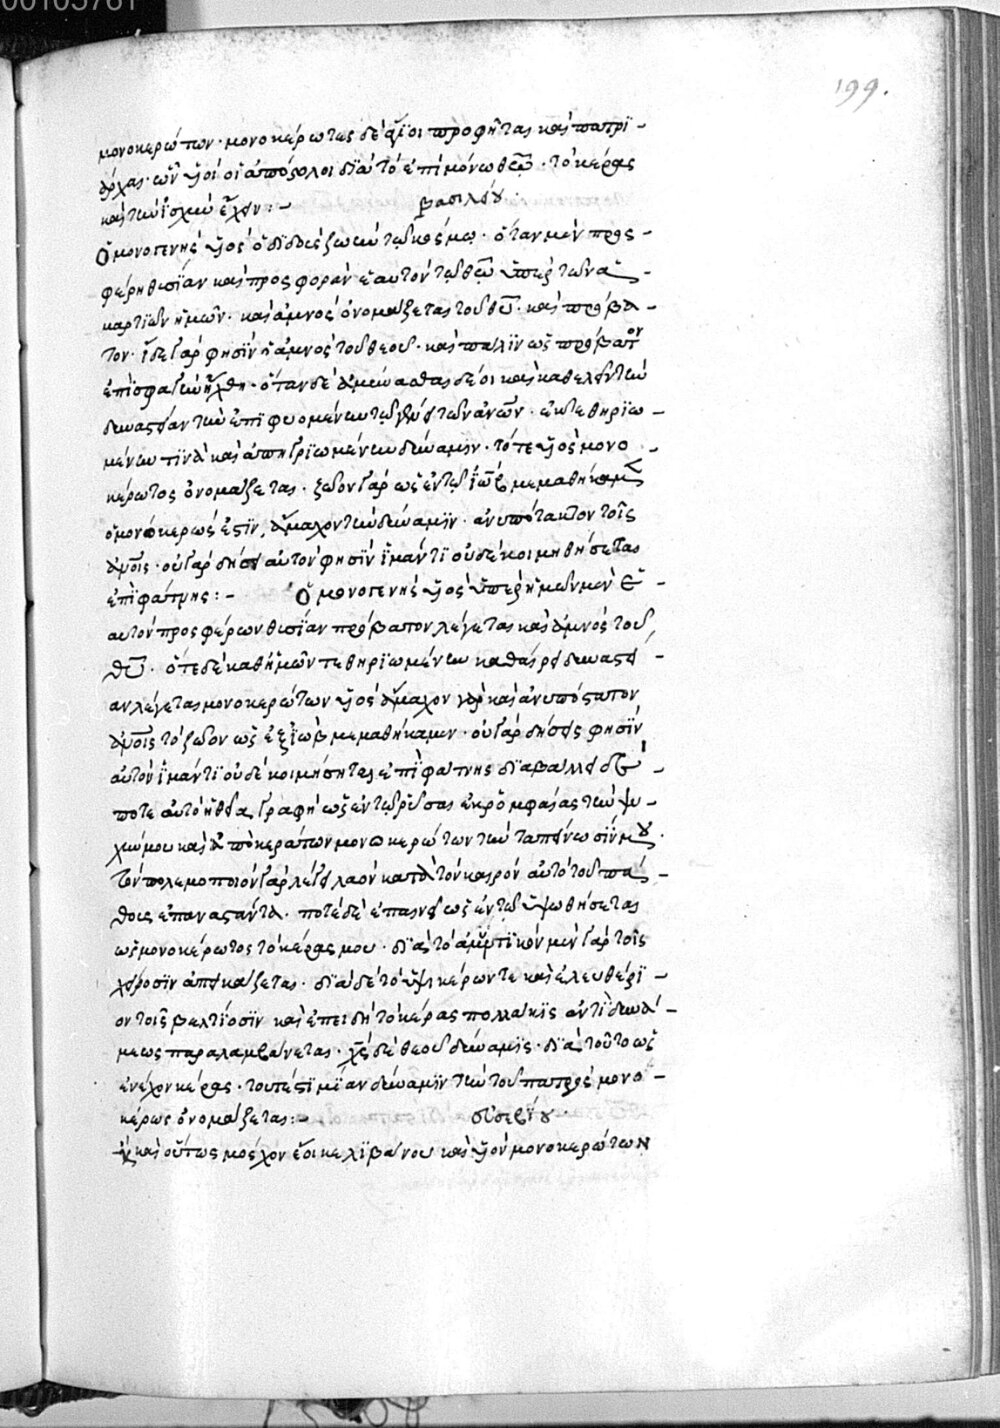 00105761
199.
μονοκερώτων· μονοκέρωτες δὲ οἱ προφῆται καὶ πατρι-
άρχαι· ὧν υἱοὶ οἱ ἀπόστολοι διὰ τὸ ἐπὶ μόνω θεῶ· τὸ κέρας
καὶ τὴν ἰσχὺν ἔχειν:-
βασιλείου
Ὁ μονογενὴς υἱὸς ὁ διδοὺς ζωὴν τῶ κόσμω· ὅταν μὲν προσ-
φέρη θυσίαν καὶ προσφορὰν ἑαυτὸν τῶ θεῶ ὑπὲρ τῶν ἁ-
μαρτιῶν ἡμῶν· καὶ ἀμνὸς ὀνομάζεται τοῦ θεοῦ· καὶ πρόβα-
τον· ἴδε γάρ φησιν ὁ ἀμνὸς τοῦ θεοῦ· καὶ πάλιν ὡς πρόβατον
ἐπὶ σφαγὴν ἤχθη· ὅταν δὲ ἀμύνασθαι δέοι καὶ καθελεῖν τὴν
δυναστείαν τὴν ἐπιφυομένην τῶ γένει τῶν ἀνθρώπων· ἐκτεθηριω-
μένην τινὰ καὶ ἀπηγριωμένην δύναμιν· τότε υἱὸς μονο-
κέρωτος ὀνομάζεται· ζῶον γὰρ ὡς ἐν τῶ ἰὼβ μεμαθήκαμεν
ὁ μονόκερως ἐστιν, ἄμαχον τὴν δύναμιν· ἀνυπότακτον τοῖς
ἀνθρώποις· οὐ γὰρ δήσεις αὐτόν φησιν ἱμάντι οὐδὲ κοιμηθήσεται
ἐπὶ φάτνης:- Ὁ μονογενὴς υἱὸς ὑπὲρ ἡμῶν μὲν ἑ-
αυτὸν προσφέρων θυσίαν πρόβατον λέγεται καὶ ἀμνὸς τοῦ
θεοῦ· ὅτε δὲ καθ' ἡμῶν τεθηριωμένην καθαίρει δυναστεί-
αν λέγεται μονοκερώτων υἱὸς ἄμαχον γὰρ καὶ ἀνυπότακτον
ἀνθρώποις τὸ ζῶον ὡς ἐξ ἰὼβ μεμαθήκαμεν· οὐ γὰρ δήσεις φησὶν
αὐτὸν ἱμάντι οὐδὲ κοιμήσηται ἐπὶ φάτνης διαβάλλει δέ
ποτε αὐτὸ ἡ θεία γραφὴ ὡς ἐν τῶ ῥῦσαι ἐκ ῥομφαίας τὴν ψυ-
χήν μου καὶ ἀπὸ κεράτων μονοκερώτων τὴν ταπείνωσίν μου·
τὸν πολεμοποιὸν γὰρ λέγει λαὸν κατὰ τὸν καιρὸν αὐτὸ τοῦ πά-
θους ἐπαναστάντα· ποτὲ δὲ ἐπαινεῖ ὡς ἐν τῶ ὑψωθήσεται
ὡς μονοκέρωτος τὸ κέρας μου· διὰ τὸ ἀμυντικὸν μὲν γὰρ τοῖς
χείροσιν ἀπεικάζεται· διὰ δὲ τὸ ὑψίκερών τε καὶ ἐλευθέρι-
ον τοῖς βελτίοσιν καὶ ἐπειδὴ τὸ κέρας πολλάκις ἀντὶ δυνά-
μεως παραλαμβάνεται· χριστὸς δὲ θεοῦ δύναμις· διὰ τοῦτο ὡς
ἓν ἔχον κέρας· τουτέστι μίαν δύναμιν τὴν τοῦ πατρὸς μονό-
κερως ὀνομάζεται:-
εὐσεβίου
καὶ οὕτως μόσχον ἔοικε λιβάνου καὶ υἱὸν μονοκερώτων